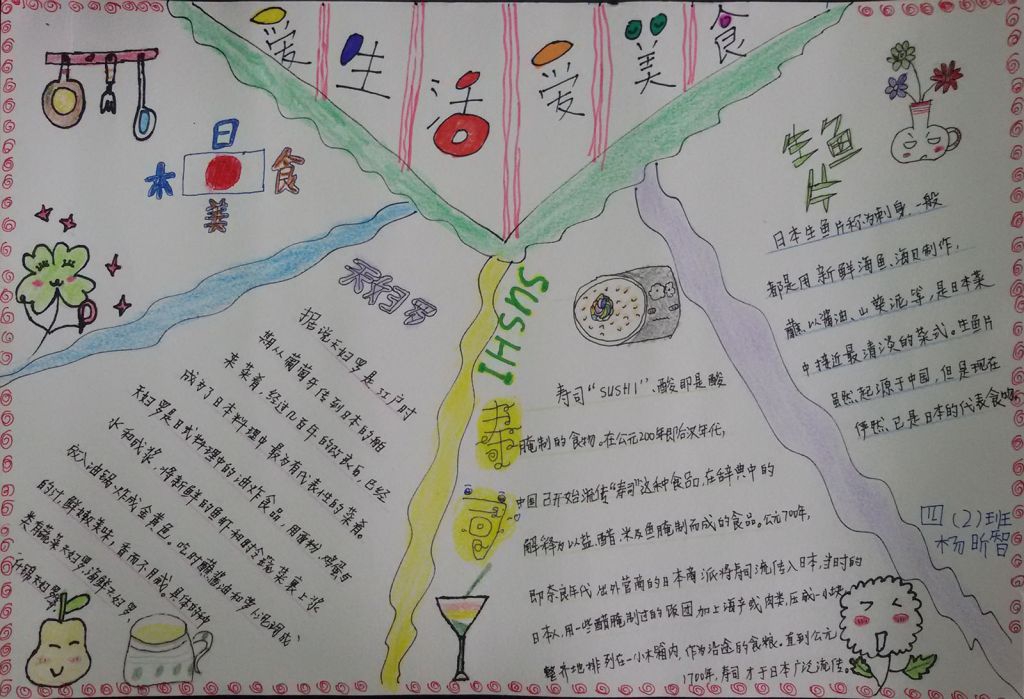 爱生活爱美食
日本美食
天妇罗
据说天妇罗是江户时
期从葡萄牙传到日本的舶
来菜肴,经过几百年的改良后,已经
成为了日本料理中最为有代表性的菜肴。
天妇罗是日式料理中的油炸食品,用面粉、鸡蛋与
水和成浆,将新鲜的鱼虾和时令蔬菜裹上浆
放入油锅炸成金黄色。吃时蘸酱油和萝卜泥调成
的汁,鲜嫩美味,香而不腻。具体的种
类有蔬菜天妇罗,海鲜天妇罗,
什锦天妇罗
SUSHI
寿司
寿司“SUSHI”、酸即是酸
腌制的食物。在公元200年即后汉年代,
中国已开始流传“寿司”这种食品,在辞典中的
解释为以盐、醋、米及鱼腌制而成的食品。公元700年,
即奈良年代 出外营商的日本商派将寿司流传入日本,当时的
日本人,用一些醋腌制过的饭团 加上海产或肉类,压成一小块
整齐地排列在一小木箱内,作为沿途的食粮。直到公元
1700年,寿司才于日本广泛流传。
生鱼片
日本生鱼片称为刺身,一般
都是用新鲜海鱼、海贝制作,
蘸以酱油、山葵泥等,是日本菜
中接近最清淡的菜式。生鱼片
虽然起源于中国,但是现在
俨然已是日本的代表食物
四(2)班
杨昕智